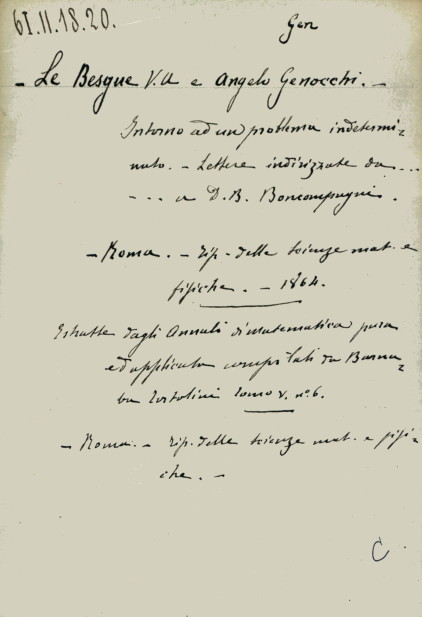 61.II.18.20.
Gen
- Le Besgue V.A e Angelo Genocchi. -
Intorno ad un problema indetermi=
nato. - Lettere indirizzate da ...
- ... a D. B. Boncompagni.
- Roma. - Tip. delle scienze mat. e
fisiche. - 1864.
Estratte dagli Annali di matematica pura
ed applicata compilati da Barna=
ba Tortolini Tomo V. nº 6.
- Roma. - Tip. delle scienze mat. e fisi=
che. -
C